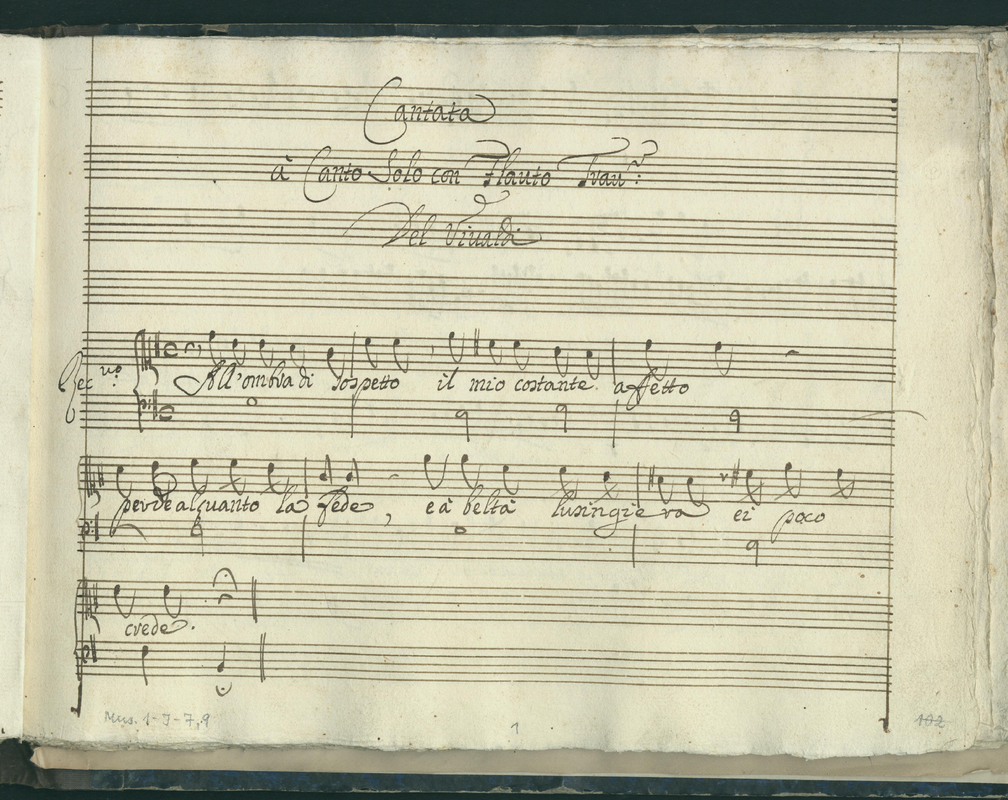 Cantata
à Canto Solo con Flauto Trav:
Del Vivaldi
Rec.vo
All'ombra di sospetto il mio costante affetto
perde alquanto la fede, e à beltà lusingiera ei poco
crede.
Mus. 1-J-7,9
1
102